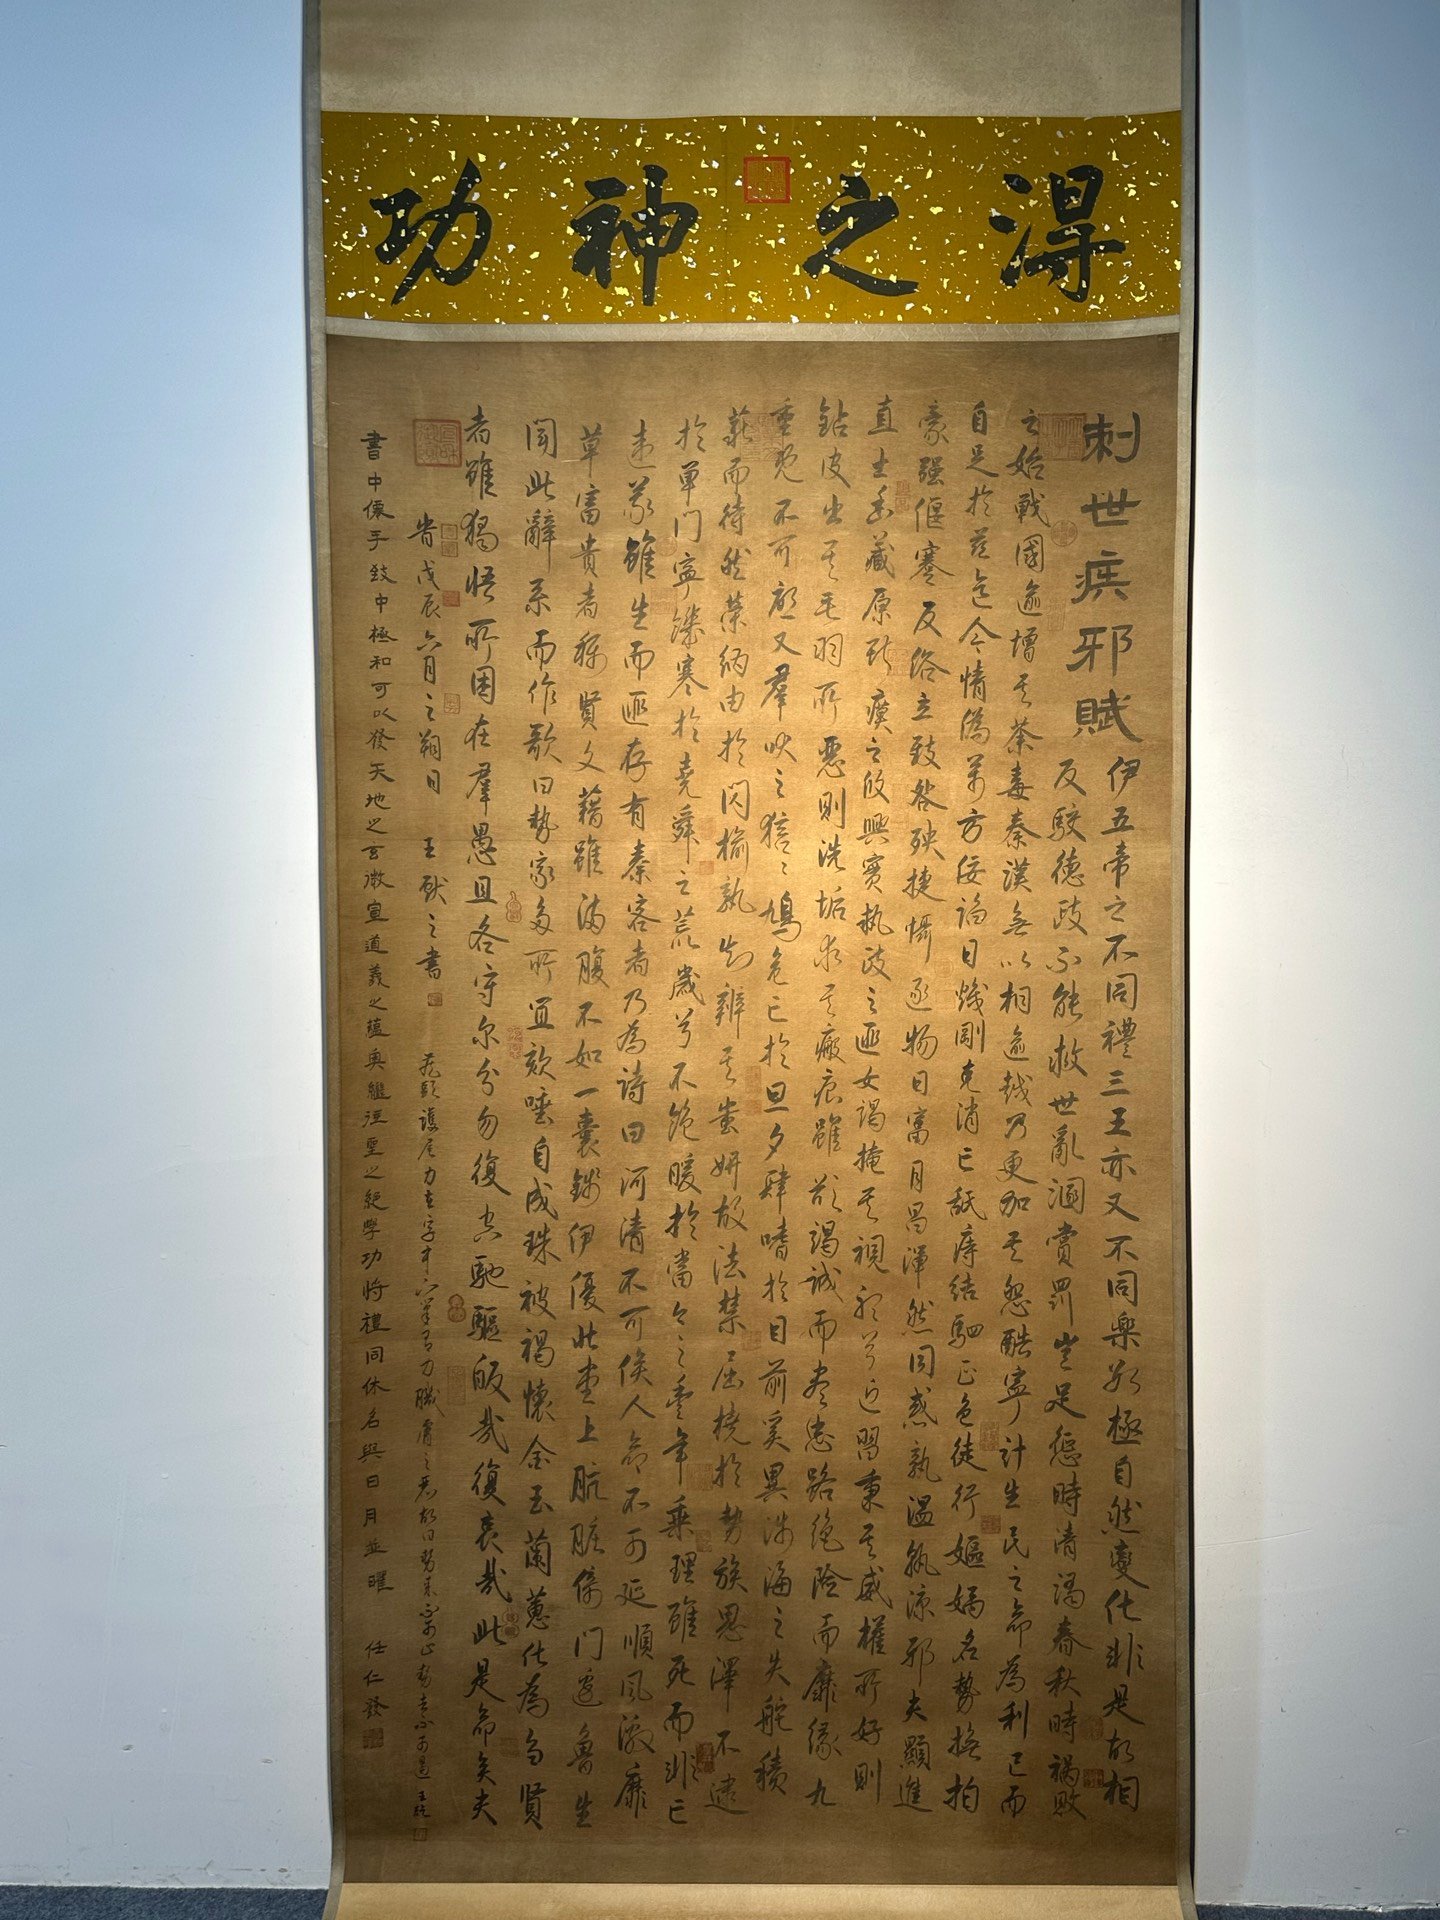 淂之神功
刺世疾邪賦
伊五帝之不同禮三王亦又不同樂數極自然變化非是故相
反駁德政不能救世亂溷賞罰豈足懲時清濁春秋時禍敗
之始戰國逾增其荼毒秦漢無以相逾越乃更加其怨酷寧計生民之命為利己而
自足於茲迄今情偽萬方佞諂日熾剛克消亡舐痔結駟正色徒行嫗媀名勢撫拍
豪强偃蹇反俗立致咎殃捷懾逐物日富月昌渾然同惑孰溫孰涼邪夫顯進
直士幽藏原斯瘼之攸興寔執政之匪女謁掩其視聽兮近習秉其威權所好則
鉆皮出其毛羽所惡則洗垢求其瘢痕雖欲竭誠而盡忠路絕險而靡緣九
重既不可啟又羣吠之狺〻鳩危亡於旦夕肆嗜於目前奚異涉海之失舵積
薪而待然榮納由於閃揄孰知辨其蚩妍故法禁屈撓於勢族恩澤不逮
於單門寧饑寒於堯舜之荒歲兮不飽暖於當今之豐年乘理雖死而非亡
違義雖生而匪存有秦客者乃為詩曰河清不可俟人命不可延順風激靡
草富貴者稱賢文藉雖滿腹不如一囊錢伊優北堂上肮髒倚門邊魯生
聞此辭系而作歌曰勢家多所宜欬唾自成珠被褐懷金玉蘭蕙化為芻賢
者雖獨悟所困在羣愚且各守尔分勿復空馳驅哉哉復哀哉此是命矣夫
嵗戊辰六月之朔日 王獻之書
書中儀乎致中極和可以發天地之玄微宣道義之蘊奧繼往聖之絕學功將禮同休名與日月並曜 任仁發